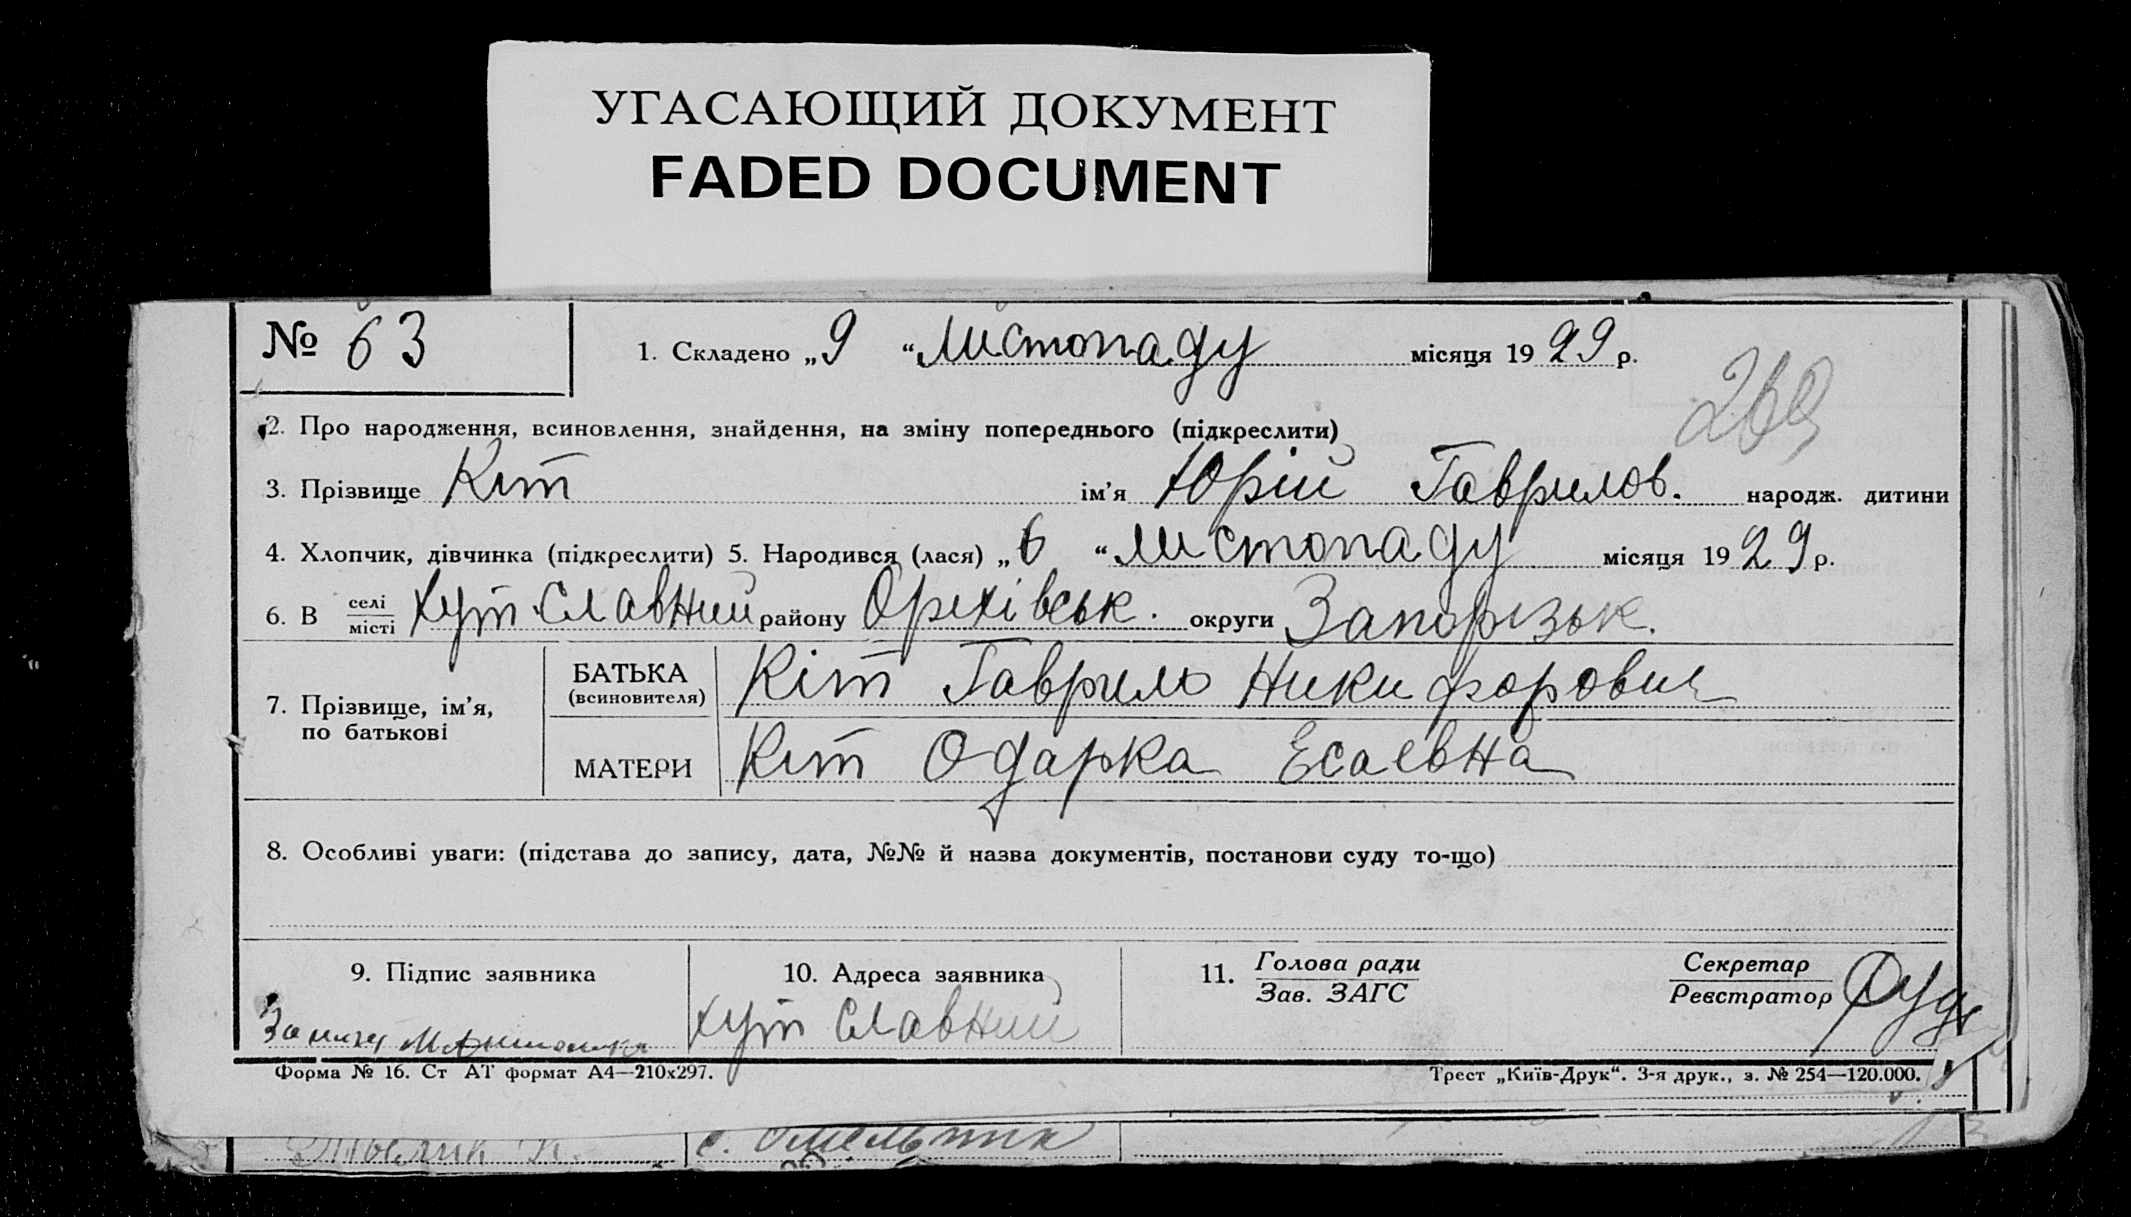 УГАСАЮЩИЙ ДОКУМЕНТ
FADED DOCUMENT
№ 63
1. Складено „9“ Листопаду місяця 1929 р.
269
2. Про народження, всиновлення, знайдення, на зміну попереднього (підкреслити)
3. Прізвище Кіт ім’я Юрій Гаврилов. народж. дитини
4. Хлопчик, дівчинка (підкреслити) 5. Народився (лася) „6“ листопаду місяця 1929 р.
6. В селі/місті Хут Славний району Оріхівськ. округи Запорізьк.
7. Прізвище, ім’я, по батькові
БАТЬКА (всиновителя) Кіт Гаврило Никифорович
МАТЕРИ Кіт Одарка Есаевна
8. Особливі уваги: (підстава до запису, дата, №№ й назва документів, постанови суду то-що)
9. Підпис заявника
10. Адреса заявника
11. Голова ради / Зав. ЗАГС
Секретар / Реєстратор
хут Славний
Форма № 16. Ст АТ формат А4—210x297.
Трест „Київ-Друк“. 3-я друк., з. № 254—120.000.
с. Омельник